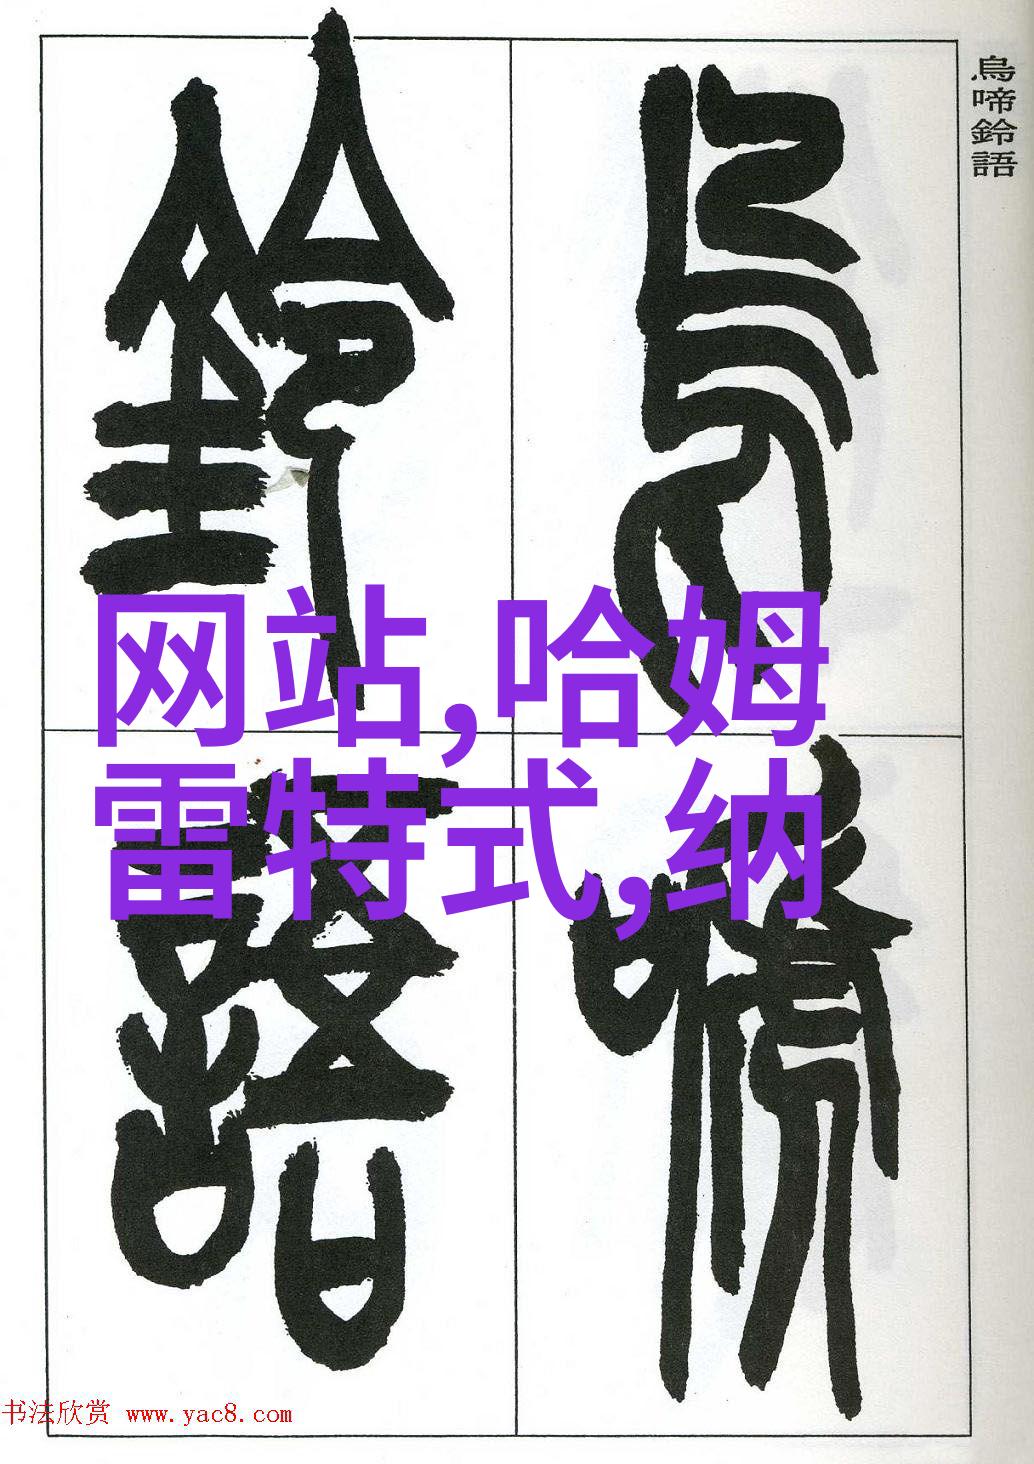 鳥啼鈴語
鳥啼
鈴語
网站,哈姆
雷特式,纳
书法欣赏 www.yac8.com